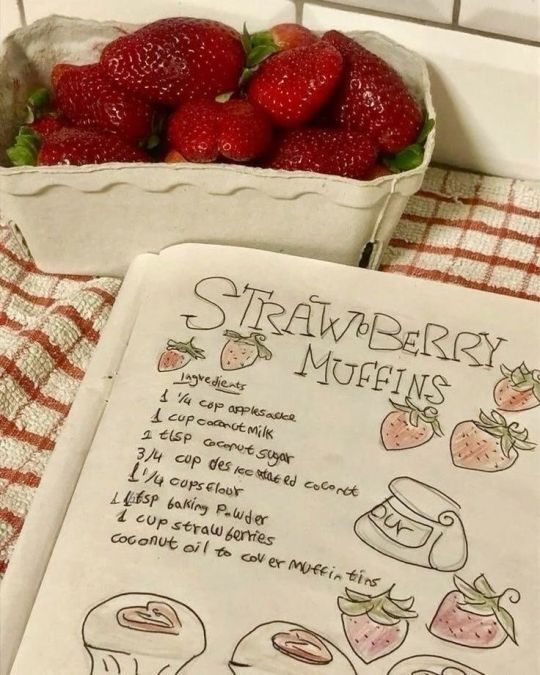 STRAWBERRY
MUFFINS
Ingredients
1 1/4 cup applesauce
1 cup coconut milk
2 tbsp coconut sugar
3/4 cup desiccated coconut
1 1/4 cups flour
1 1/2 tsp baking Powder
1 cup strawberries
coconut oil to cover muffin tins